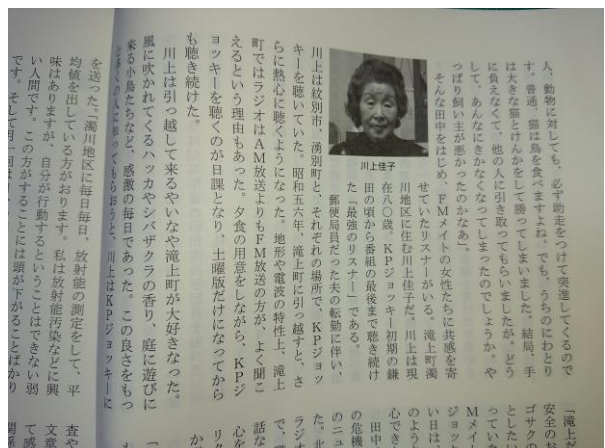 人、動物に対しても、必ず助走をつけて突進してくるので
す。普通、猫は鳥を食べますよね。でも、うちのにわとり
は大きな猫とけんかをして勝ってしまいました。結局、手
に負えなくて、他の人に引き取ってもらいましたが、どう
して、あんなにきかなくなってしまったのでしょうか。や
っぱり飼い主が悪かったのかなあ」。
そんな田中をはじめ、FMメイトの女性たちに共感を寄
せていたリスナーがいる。滝上町濁
川地区に住む川上佳子だ。川上は現
在八〇歳。KPジョッキー初期の鎌
田の頃から番組の最後まで聴き続け
た「最強のリスナー」である。
郵便局員だった夫の転勤に伴い、
川上佳子
川上は紋別市、湧別町と、それぞれの場所で、KPジョッ
キーを聴いていた。昭和五六年、滝上町に引っ越すと、さ
らに熱心に聴くようになった。地形や電波の特性上、滝上
町ではラジオはAM放送よりもFM放送の方が、よく聞こ
えるという理由もあった。夕食の用意をしながら、KPジ
ョッキーを聴くのが日課となり、土曜版だけになってから
も聴き続けた。
川上は引っ越して来るやいなや滝上町が大好きなった。
風に吹かれてくるハッカやシバザクラの香り、庭に遊びに
来る小鳥たちなど、感激の毎日であった。この良さをもっ
と多くの人に知ってもらおうと、川上はKPジョッキーに
を送った。「濁川地区に毎日毎日、放射能の測定をして、平
均値を出している方がおります。私は放射能汚染などに興
味はありますが、自分が行動するということはできない弱
い人間です。この方がすることには頭が下がることばかり
です。そして月一回は
「滝上
安全のお
ゴサクの
としたい
っていた
Mメイト
ジョッキ
い日は、
のような
心でき
田中
の危機
のニュ
た。北
ラジオ
で、
話な
心を
リク
か
「